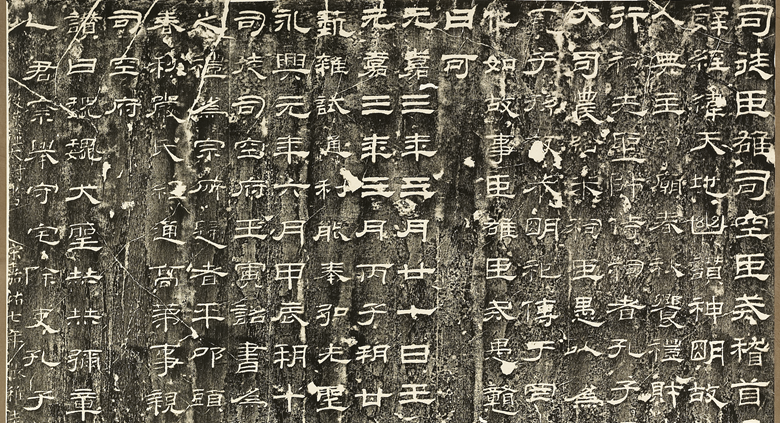 司徒臣雄司空臣戒稽首
辭經緯天地幽讚神明故
人典主守廟春秋饗禮財
行祠先聖師侍祠者孔子
大司農給米祠臣愚以為
寵子孫敬恭明祀傳于罔
他如故事臣雄臣戒愚戇
曰可
元嘉三年三月廿七日壬
元嘉三年三月丙子朔廿
藝雜試通利能奉弘先聖
永興元年六月甲辰朔十
司徒司空府壬寅詔書為
之禮為宗所歸者平叩頭
春秋嚴氏經通高第事親
司空府
讚曰巍巍大聖赫赫彌章
人君察舉守宅除吏孔子
宋嘉祐七年